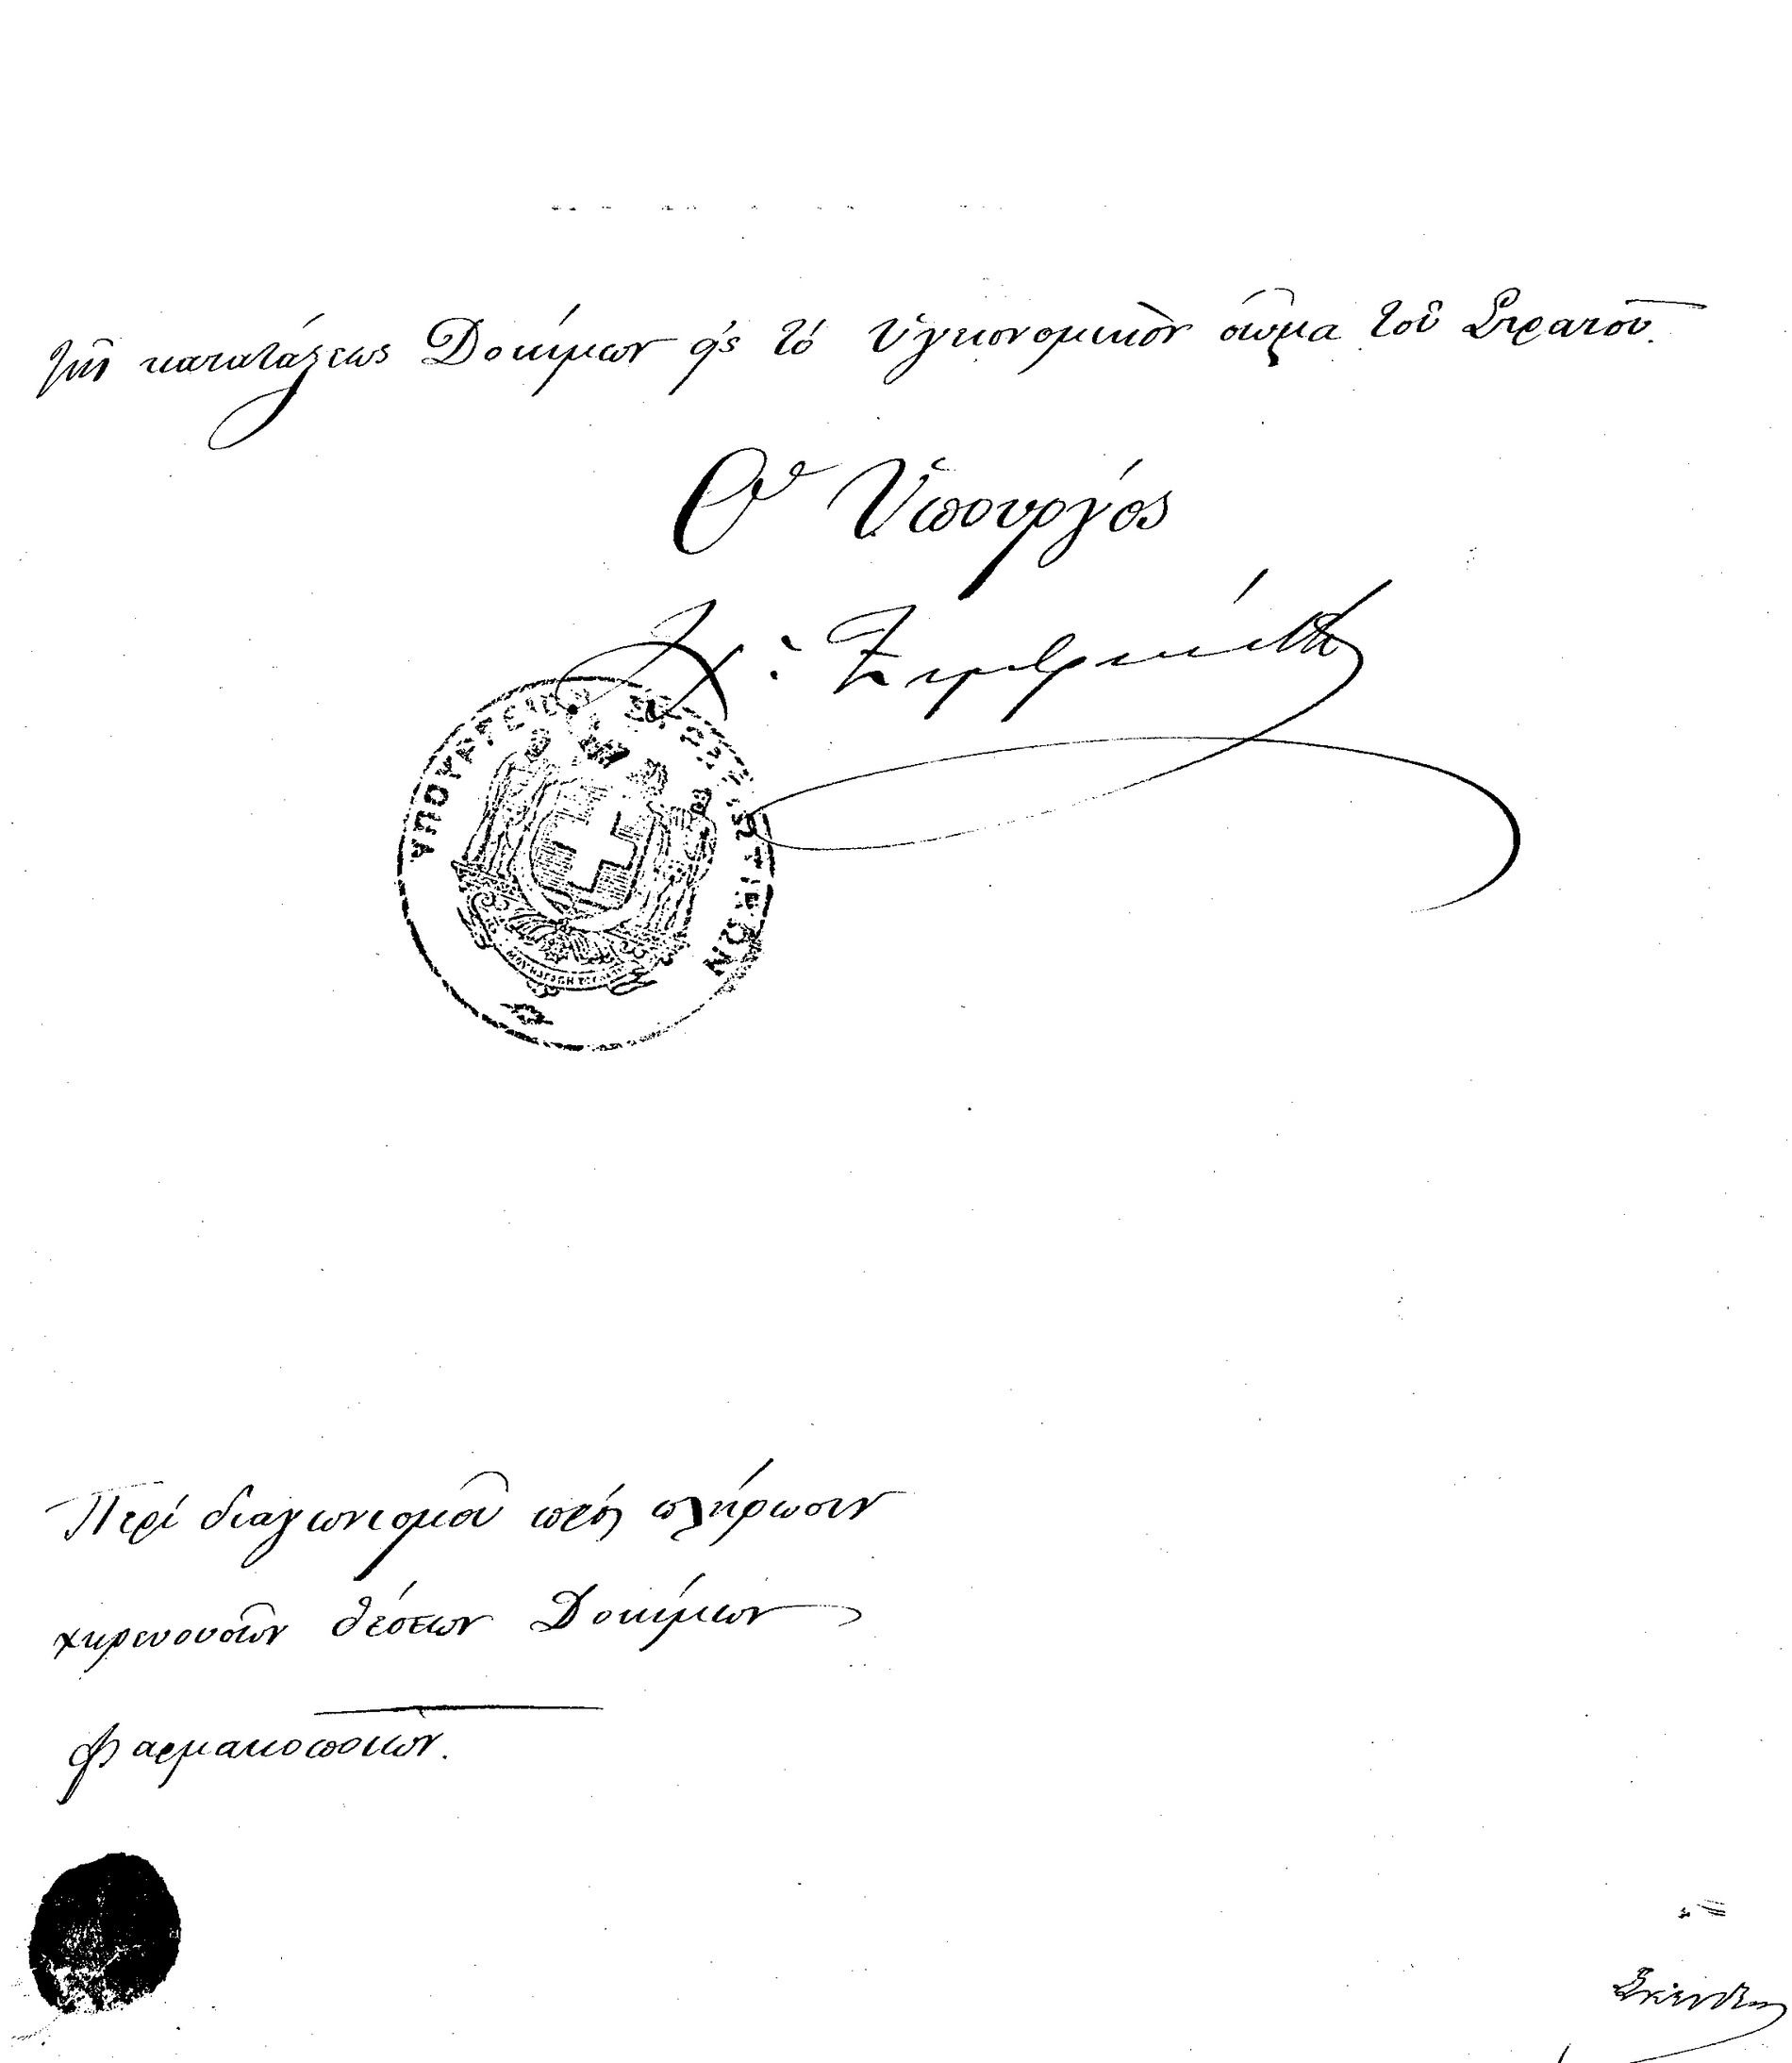 τῆς κατατάξεως Δοκίμων εἰς τό Ὑγειονομικὸν σῶμα τοῦ Στρατοῦ.
Ὁ Ὑπουργός
ΥΠΟΥΡΓΕΙΟΝ ΣΤΡΑΤΙΩΤΙΚΩΝ
Περί διαγωνισμοῦ πρός πλήρωσιν
χηρευουσῶν θέσεων Δοκίμων
φαρμακοποιῶν.